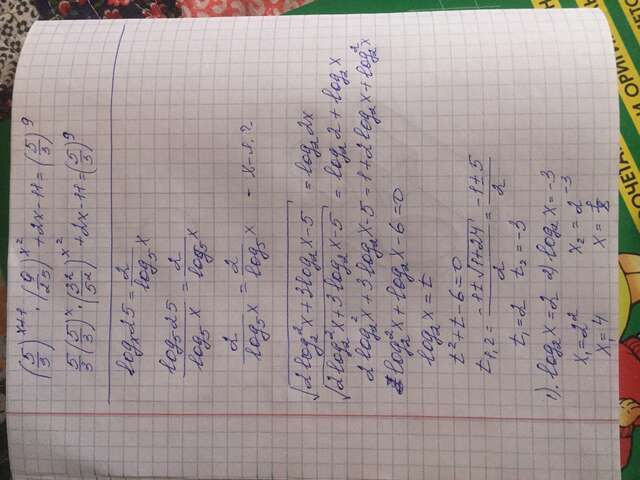 (5/3)^(x+1) · (9/25)^(x²+2x-11) = (5/3)^9
5/3 (5/3)^x · (3²/5²)^(x²+2x-11) = (5/3)^9
log_x 25 = 2/log_5 x
log_5 25/log_5 x = 2/log_5 x
2/log_5 x = 2/log_5 x - x-?
√(2log_2² x + 3log_2 x - 5) = log_2 2x
√(2log_2² x + 3log_2 x - 5) = log_2 2 + log_2 x
2log_2² x + 3log_2 x - 5 = 1 + 2log_2 x + log_2² x
log_2² x + log_2 x - 6 = 0
log_2 x = t
t² + t - 6 = 0
t_1,2 = (-1 ± √(1+24))/2 = (-1 ± 5)/2
t_1 = 2 t_2 = -3
1). log_2 x = 2 2) log_2 x = -3
x_1 = 2² x_2 = 2^-3
x_1 = 4 x = 1/8